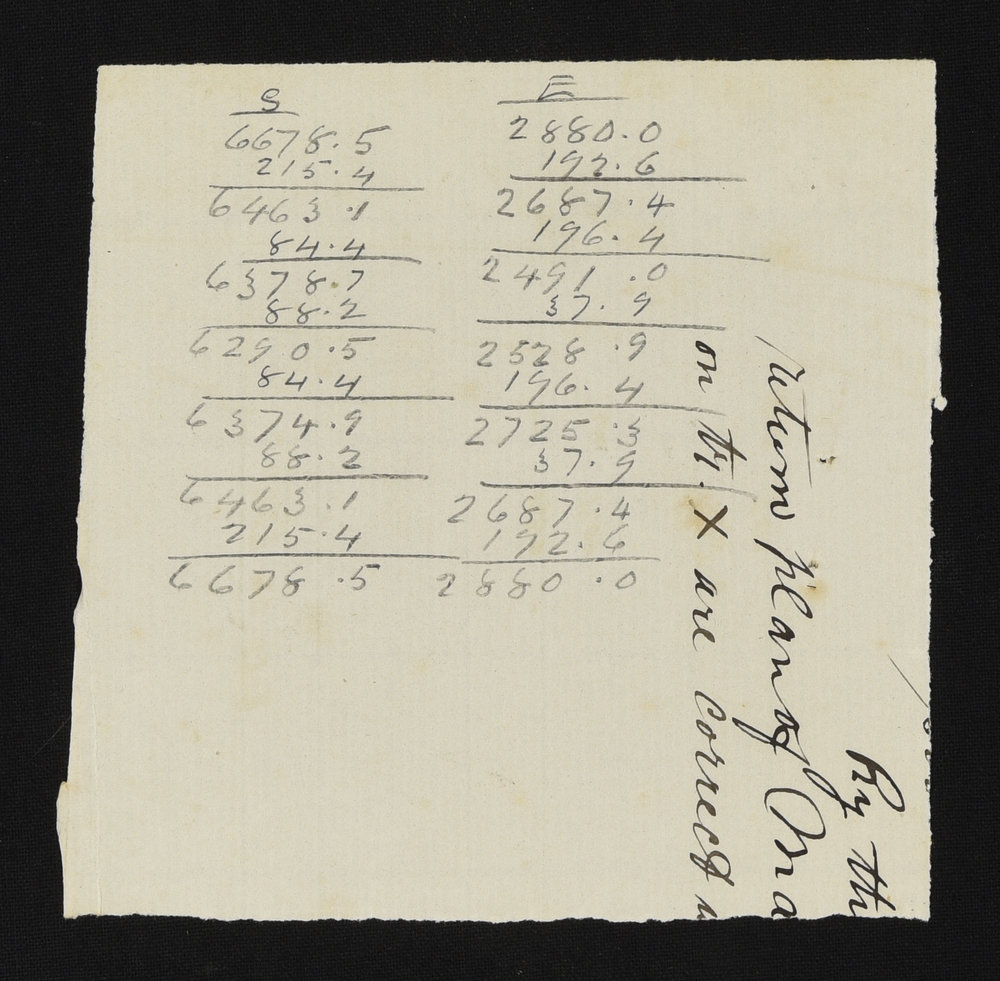 S
6678.5
215.4
6463.1
84.4
6378.7
88.2
6290.5
84.4
6374.9
88.2
6463.1
215.4
6678.5
E
2880.0
192.6
2687.4
196.4
2491.0
37.9
2528.9
196.4
2725.3
37.9
2687.4
192.6
2880.0
Ry th
plan of
on tr. X are correct